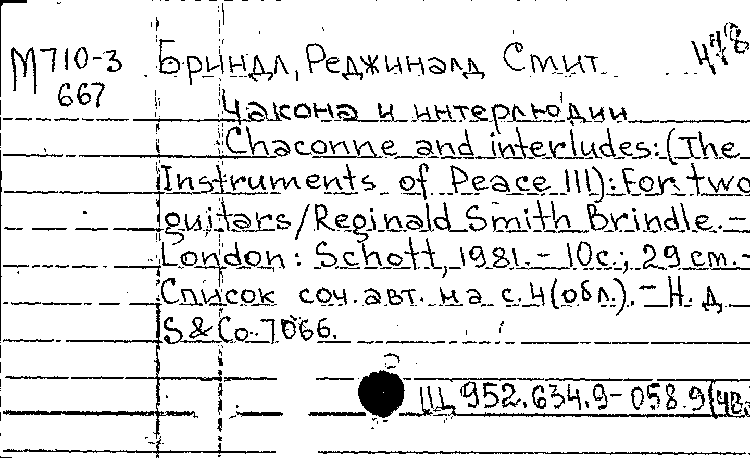 М710-3 Бриндл, Реджиналд Смит 478
667
Чакона и интерлюдии
Chaconne and interludes: (The
Instruments of Peace III): For two
guitars/Reginald Smith Brindle. –
London: Schott, 1981. – 10с.; 29 cm. –
Список соч. авт. на с. 4 (обл.). – Н. д.
S & Co 7066.
Щ 952.634.9-058.9